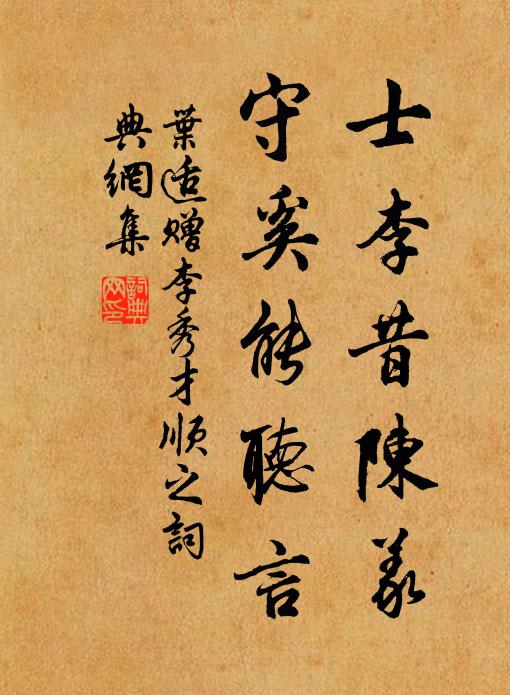 士李昔陳義
守奚能聽言
葉適贈李秀才順之詞
典網集
詞典
网印